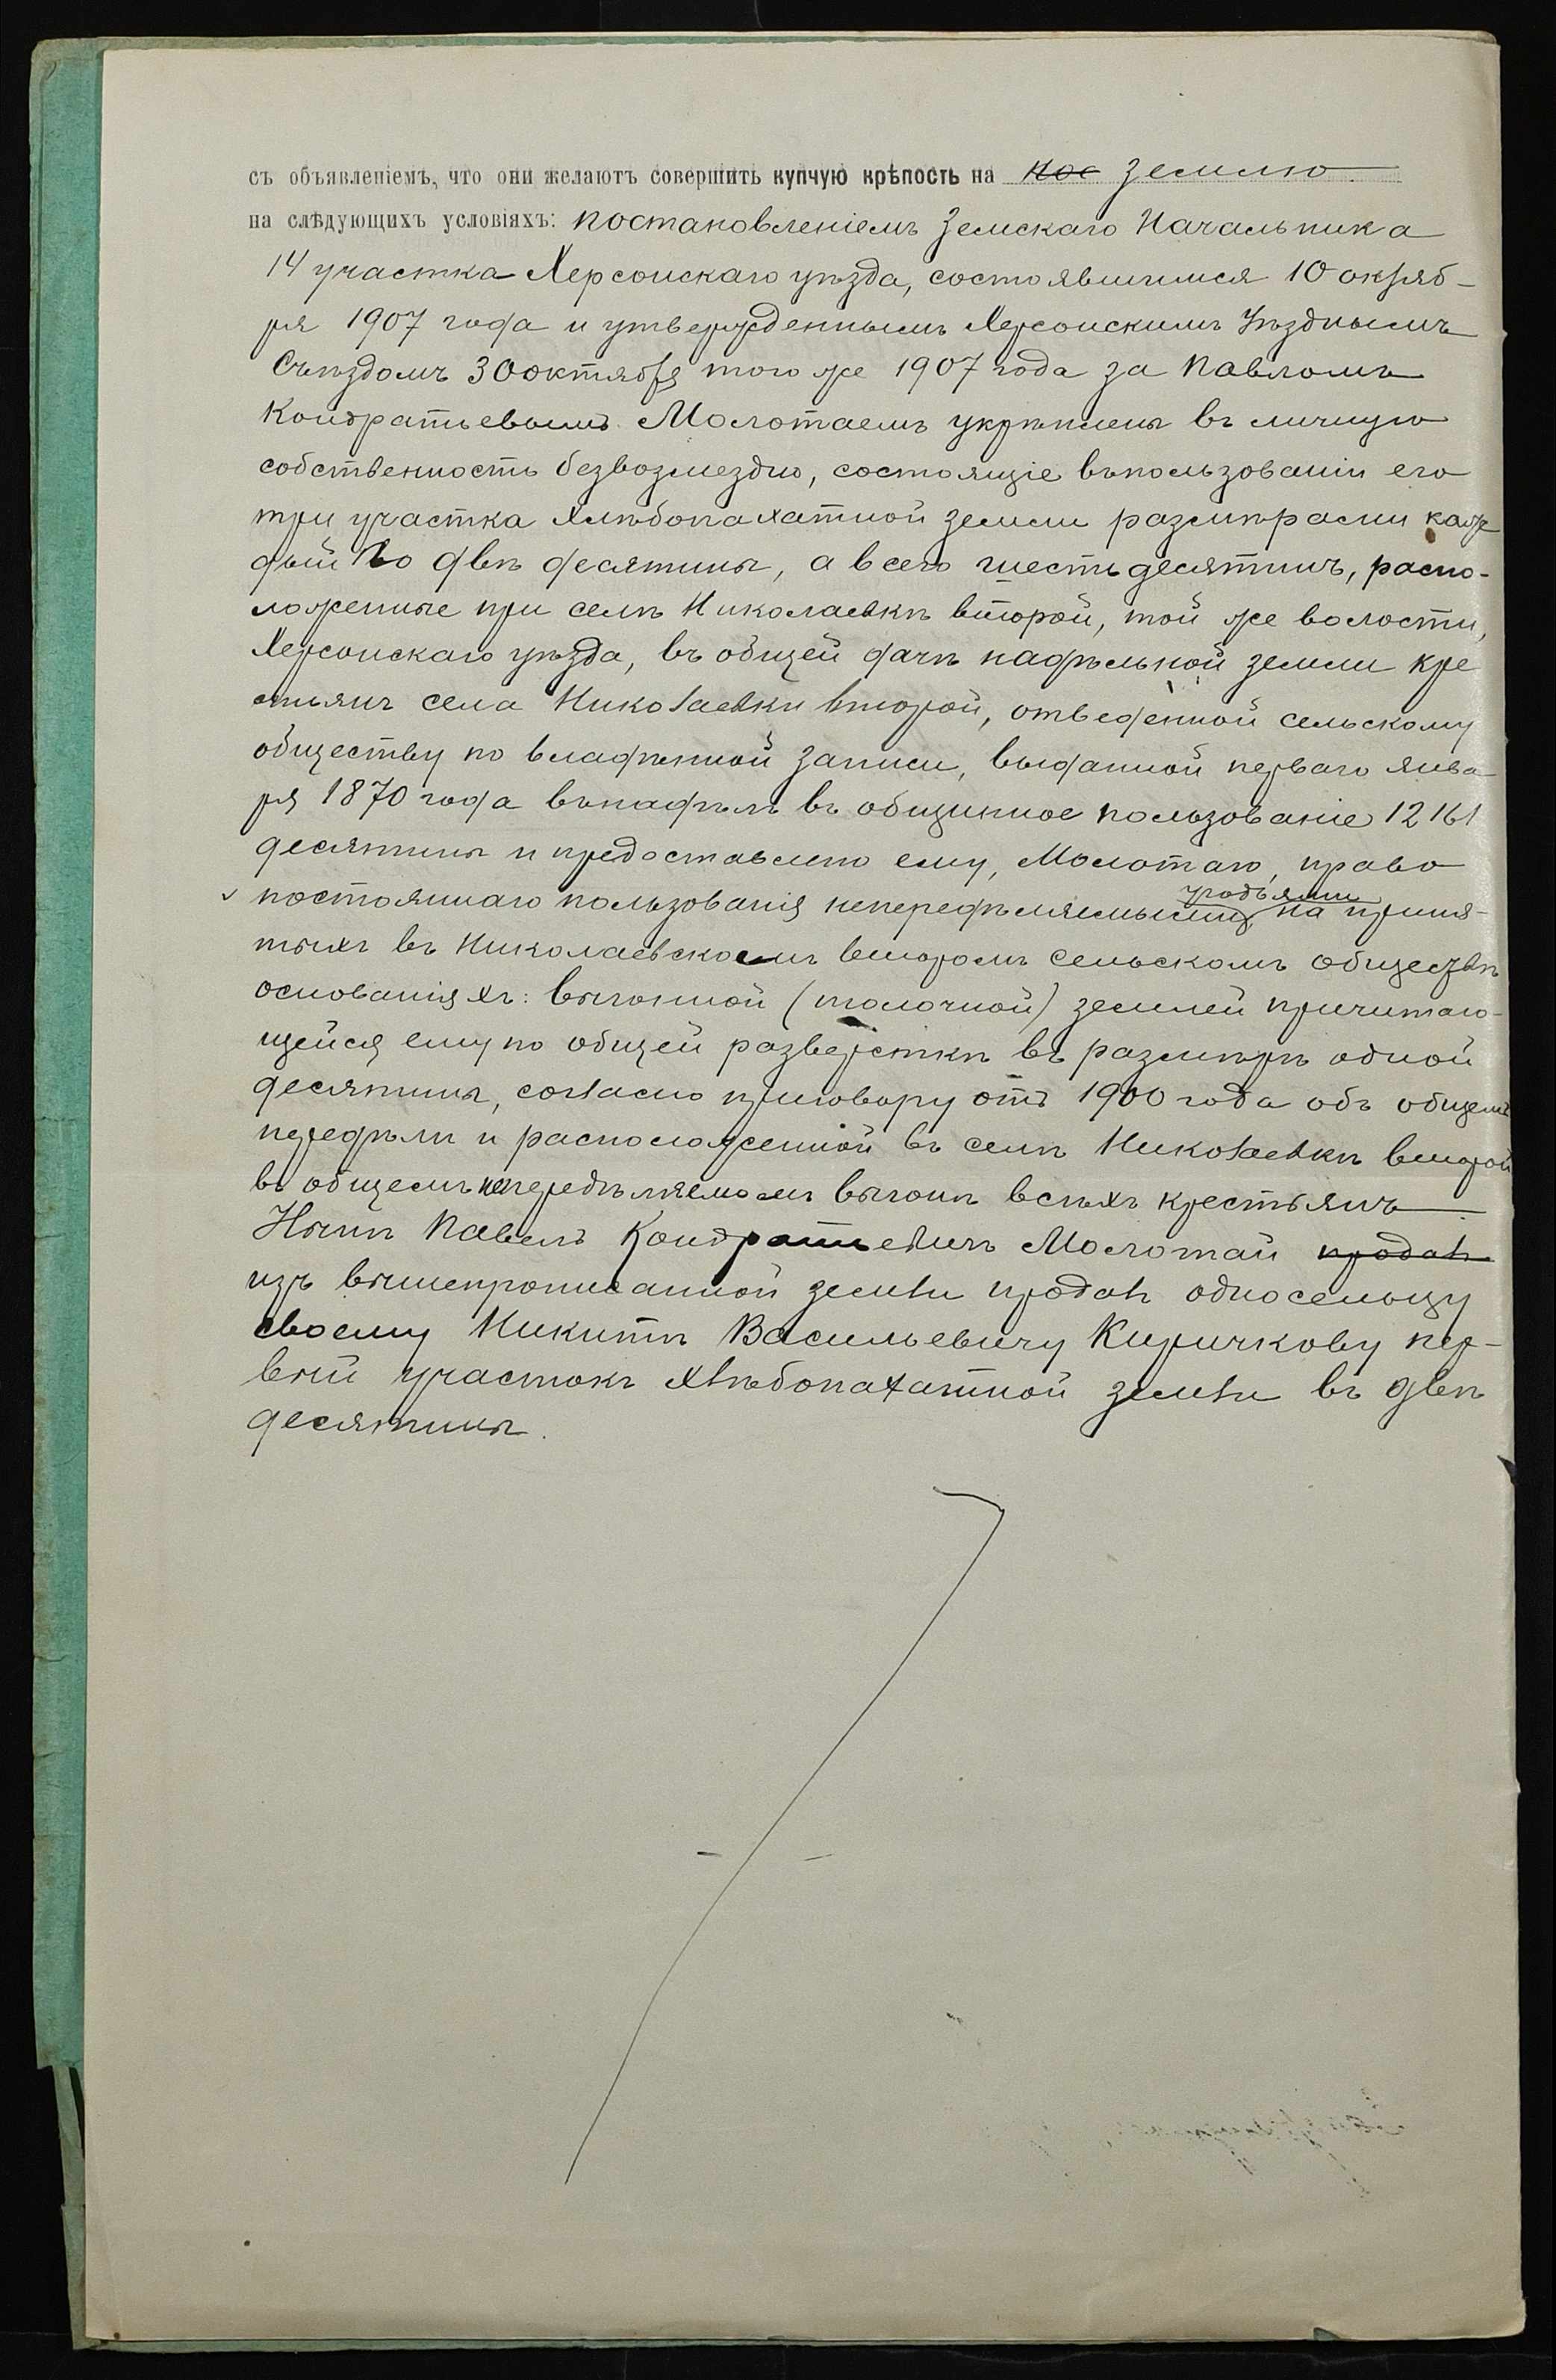 съ объявленіемъ, что они желаютъ совершить купчую крѣпость на нос землю
на слѣдующихъ условіяхъ: постановленіемъ Земскаго Начальника
14 участка Херсонскаго уѣзда, состоявшимся 10 октяб-
ря 1907 года и утвержденнымъ Херсонскимъ Уѣзднымъ
Съѣздомъ 30 октября того же 1907 года за Павломъ
Кондратьевымъ Молотаемъ укрѣплены въ личную
собственность безвозмездно, состоящіе въ пользованіи его
три участка хлѣбопахатной земли размѣрами каж
дый по двѣ десятины, а всего шесть десятинъ, распо-
ложенные при селѣ Николаевкѣ второй, той же волости,
Херсонскаго уѣзда, въ общей дачѣ надѣльной земли кре
стьянъ села Николаевки второй, отведенной сельскому
обществу по владѣнной записи, выданной перваго янва
ря 1870 года въ надѣлъ въ общинное пользованіе 12161
десятины и предоставлено ему, Молотаю, право
угодьями
постояннаго пользованія непередѣляемыми на приня-
тыхъ въ Николаевскомъ второмъ сельскомъ обществѣ
основаніяхъ: выгонной (толочной) землей причитаю-
щейся ему по общей разверсткѣ въ размѣрѣ одной
десятины, согласно приговору отъ 1900 года объ общемъ
передѣлѣ и расположенной въ селѣ Николаевкѣ второй
въ общемъ непередѣляемомъ выгонѣ всѣхъ крестьянъ
Нынѣ Павелъ Кондратьевичъ Молотай продалъ
изъ вышепрописанной земли продалъ односельцу
своему Никитѣ Васильевичу Киричкову пер-
вый участокъ хлѣбопахатной земли въ двѣ
десятины.